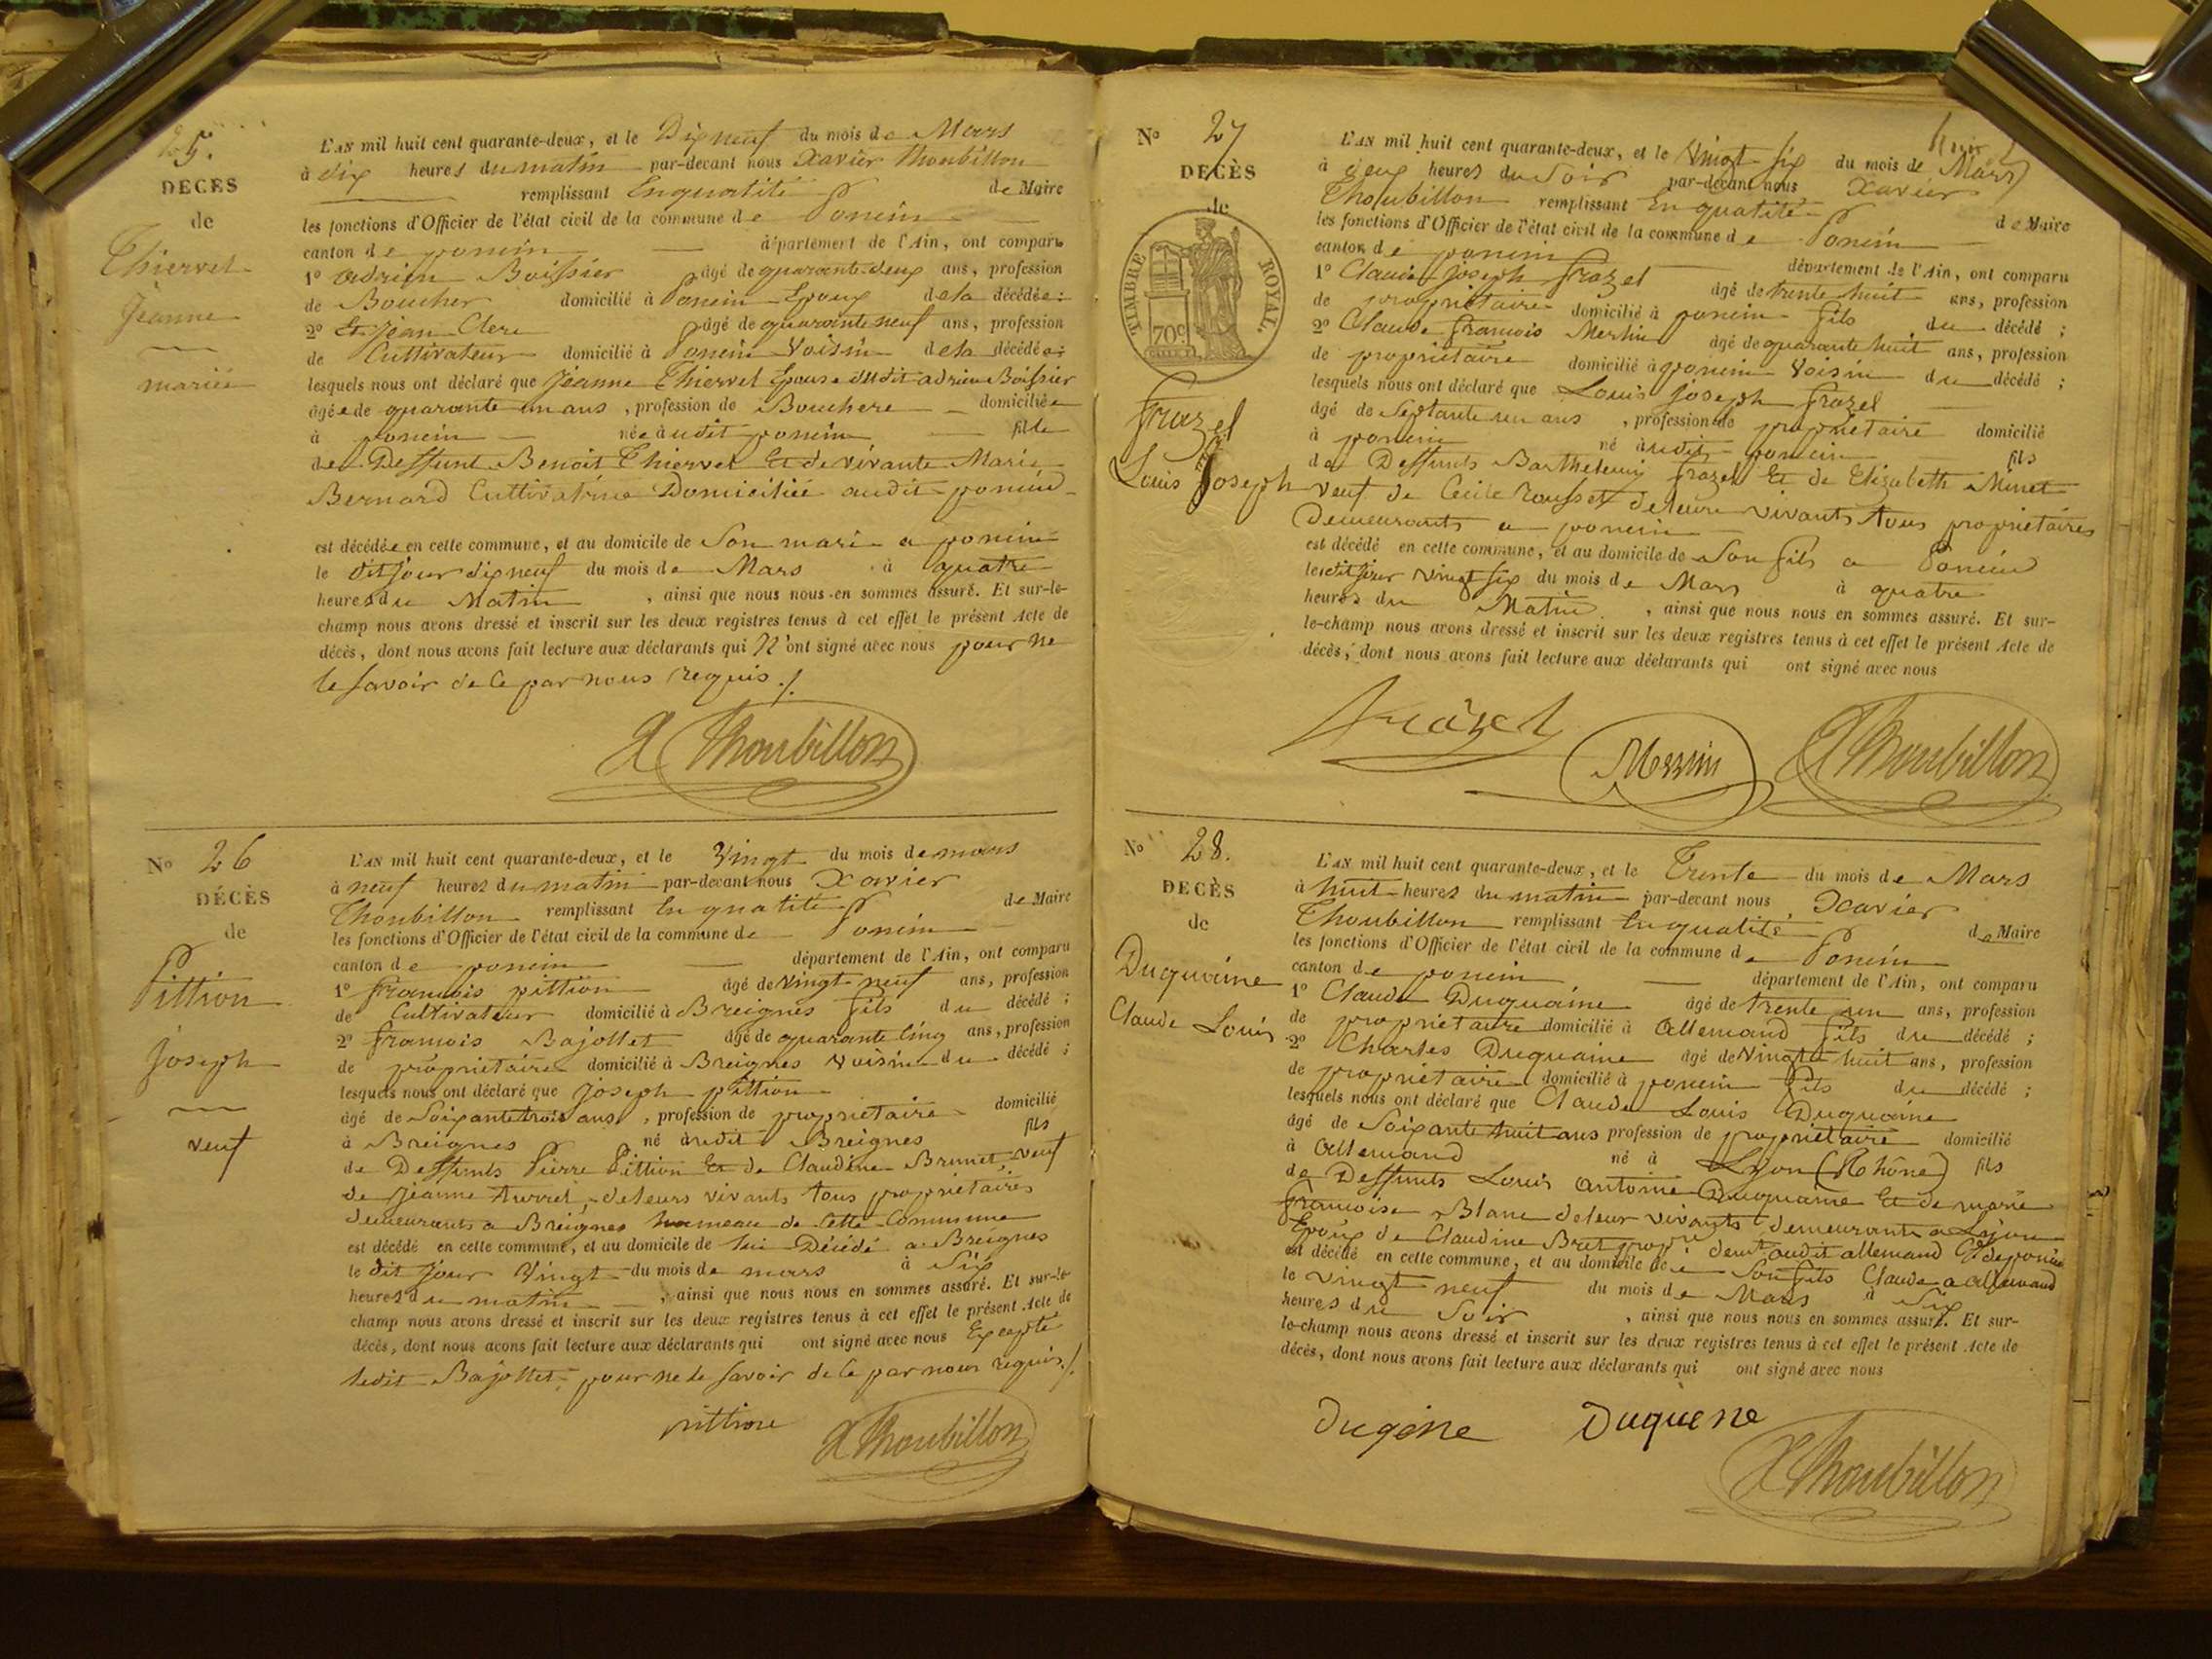 25.
DÉCÈS
de
Thiervet
Jeanne
mariée
L'AN mil huit cent quarante-deux, et le Dix neuf du mois de Mars
à dix heures du matin par-devant nous Xavier Thoubillon
remplissant En qualité de Maire
les fonctions d'Officier de l'état civil de la commune de Poncin
canton de poncin département de l'Ain, ont comparu
1° Adrien Boissier âgé de quarante-deux ans, profession
de Boucher domicilié à Poncin Epoux de la décédée :
2° Et Jean Clerc âgé de quarante neuf ans, profession
de Cultivateur domicilié à Poncin Voisin de la décédée ;
lesquels nous ont déclaré que Jeanne Thiervet Epouse dudit adrien Boissier
âgée de quarante un ans, profession de Bouchere domiciliée
à poncin née audit poncin fille
de Deffunt Benoit Thiervet Et de vivante Marie
Bernard Cultivatrice Domiciliée audit poncin
est décédée en cette commune, et au domicile de Son mari a poncin
le dit jour dix neuf du mois de Mars à quatre
heures du Matin, ainsi que nous nous en sommes assuré. Et sur-le-
champ nous avons dressé et inscrit sur les deux registres tenus à cet effet le présent Acte de
décès, dont nous avons fait lecture aux déclarants qui N'ont signé avec nous pour ne
le savoir de ce par nous requis ./.
X Thoubillon
N° 26
DÉCÈS
de
Pittion
Joseph
veuf
L'AN mil huit cent quarante-deux, et le Vingt du mois de mars
à neuf heures du matin par-devant nous Xavier
Thoubillon remplissant En qualité de Maire
les fonctions d'Officier de l'état civil de la commune de Poncin
canton de poncin département de l'Ain, ont comparu
1° françois pittion âgé de vingt neuf ans, profession
de Cultivateur domicilié à Breignes fils du décédé ;
2° françois Bajollet âgé de quarante Cinq ans, profession
de propriétaire domicilié à Breignes voisin du décédé ;
lesquels nous ont déclaré que Joseph pittion
âgé de Soixante trois ans, profession de propriétaire domicilié
à Breignes né audit Breignes fils
de Deffunts Pierre Pittion Et de Claudine Brunet, veuf
de Jeanne, de leurs vivants tous propriétaires
demeurants a Breignes hameau de Cette Commune
est décédé en cette commune, et au domicile de lui Décédé a Breignes
le dit jour Vingt du mois de mars à Six
heures du matin, ainsi que nous nous en sommes assuré. Et sur-le-
champ nous avons dressé et inscrit sur les deux registres tenus à cet effet le présent Acte de
décès, dont nous avons fait lecture aux déclarants qui ont signé avec nous Excepté
ledit Bajollet, pour ne le savoir de ce par nous requis ./.
pittion X Thoubillon
N° 27
DÉCÈS
de
TIMBRE ROYAL.
70c
frazel
Louis Joseph
L'AN mil huit cent quarante-deux, et le Vingt Six du mois de Mars
à deux heures du Soir par-devant nous Xavier
Thoubillon remplissant En qualité de Maire
les fonctions d'Officier de l'état civil de la commune de Poncin
canton de poncin département de l'Ain, ont comparu
1° Claude Joseph frazel âgé de trente huit ans, profession
de propriétaire domicilié à poncin fils du décédé ;
2° Claude françois âgé de quarante huit ans, profession
de propriétaire domicilié à poncin Voisin du décédé ;
lesquels nous ont déclaré que Louis Joseph frazel
âgé de Septante un ans, profession de propriétaire domicilié
à poncin né audit poncin fils
de Deffunts Barthelemy frazel Et de Elizabeth Minet
veuf de Cecile Rousset de leurs vivants tous propriétaires
Demeurants a poncin
est décédé en cette commune, et au domicile de Son fils a Poncin
le dit jour vingt six du mois de Mars à quatre
heures du Matin, ainsi que nous nous en sommes assuré. Et sur-
le-champ nous avons dressé et inscrit sur les deux registres tenus à cet effet le présent Acte de
décès, dont nous avons fait lecture aux déclarants qui ont signé avec nous
frazel
X Thoubillon
N° 28.
DÉCÈS
de
Duquaine
Claude Louis
L'AN mil huit cent quarante-deux, et le Trente du mois de Mars
à huit heures du matin par-devant nous Xavier
Thoubillon remplissant En qualité de Maire
les fonctions d'Officier de l'état civil de la commune de Poncin
canton de poncin département de l'Ain, ont comparu
1° Claude Duquaine âgé de trente un ans, profession
de propriétaire domicilié à Allemand fils du décédé ;
2° Charles Duquaine âgé de Vingt huit ans, profession
de propriétaire domicilié à poncin fils du décédé ;
lesquels nous ont déclaré que Claude Louis Duquaine
âgé de Soixante huit ans profession de propriétaire domicilié
à Allemand né à Lyon (Rhône) fils
de Deffunts Louis Antoine Duquaine Et de marie
françoise Blanc de leur vivants demeurants a Lyon
Epoux de Claudine Bret demt audit allemand Cne de poncin
est décédé en cette commune, et au domicile de Son fils Claude a allemand
le vingt neuf du mois de Mars à Six
heures du Soir, ainsi que nous nous en sommes assuré. Et sur-
le-champ nous avons dressé et inscrit sur les deux registres tenus à cet effet le présent Acte de
décès, dont nous avons fait lecture aux déclarants qui ont signé avec nous
Dugène Duquene
X Thoubillon